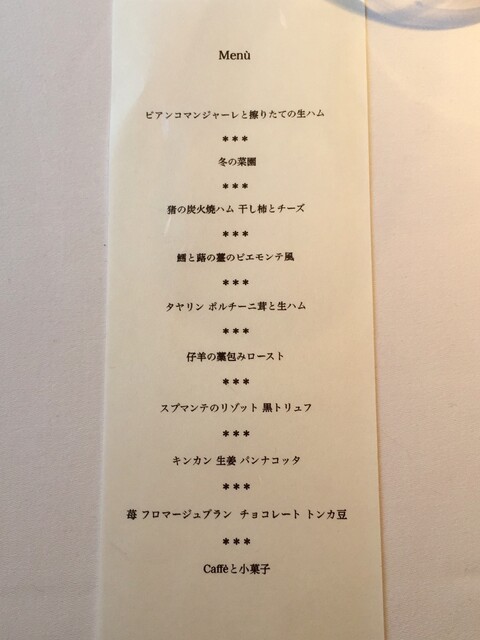 Menù
ビアンコマンジャーレと擦りたての生ハム
***
冬の菜園
***
猪の炭火焼ハム 干し柿とチーズ
***
鱈と蕗の薹のピエモンテ風
***
タヤリン ポルチーニ茸と生ハム
***
仔羊の藁包みロースト
***
スプマンテのリゾット 黒トリュフ
***
キンカン 生姜 パンナコッタ
***
苺 フロマージュブラン チョコレート トンカ豆
***
Caffèと小菓子